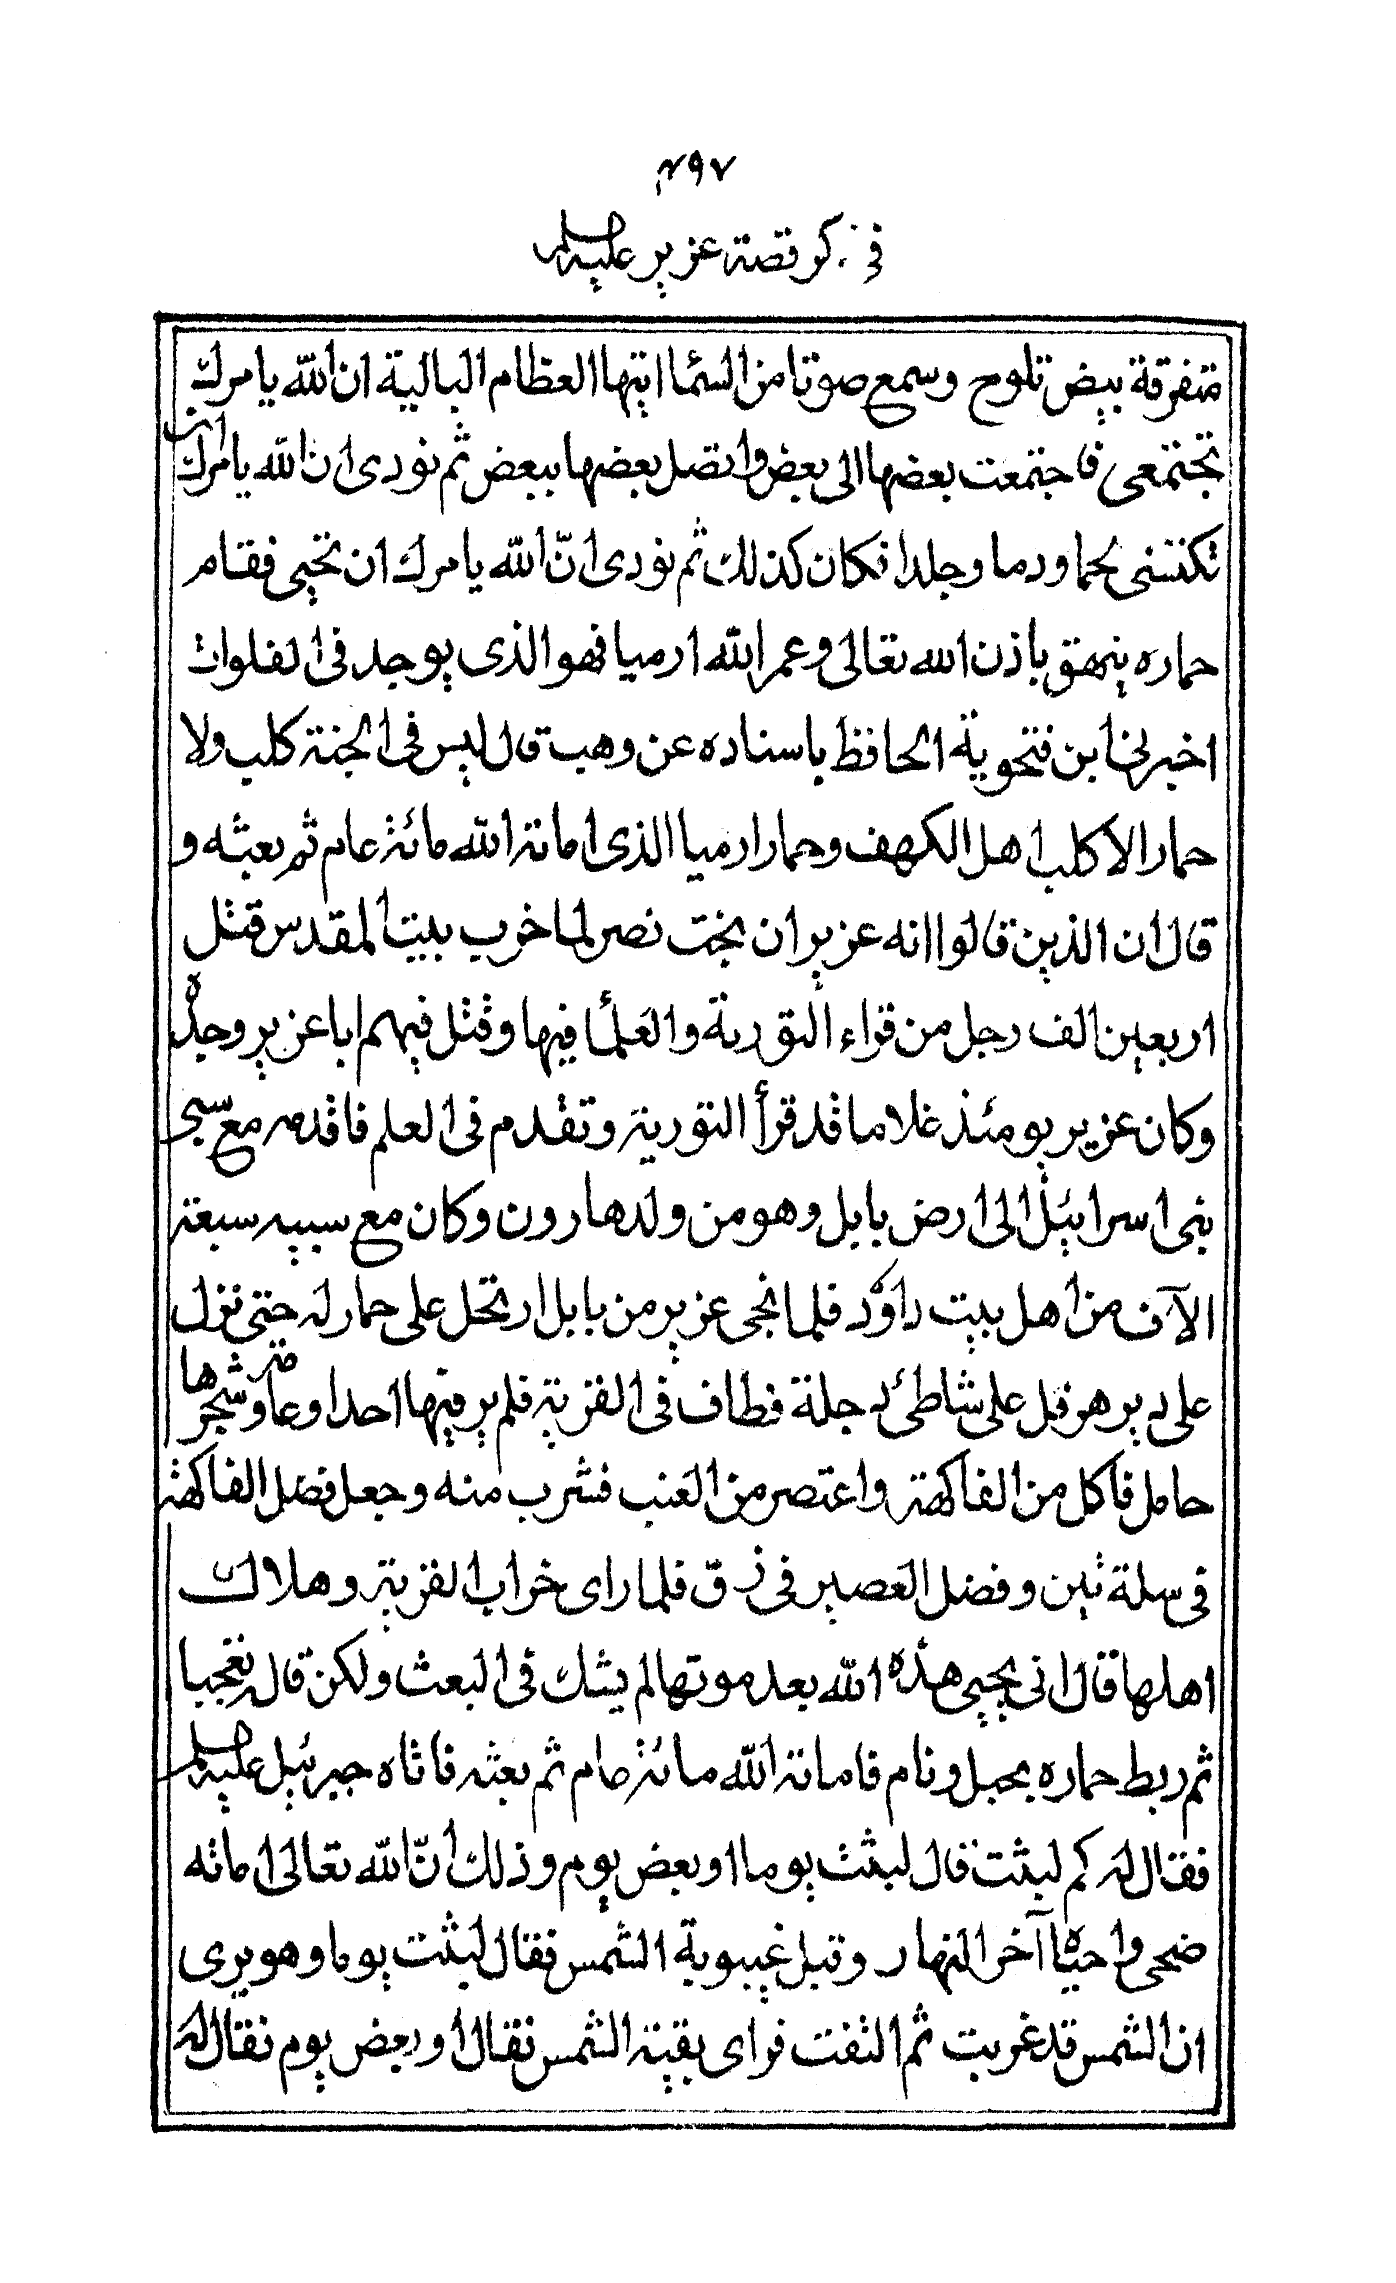 ٤٩٧
في ذكر قصة عزير عليه السلم
متفرقة بيض تلوح وسمع صوتا من السماء ايتها العظام البالية ان الله يامرك ان
تجتمعى فاجتمعت بعضها الى بعض واتصل بعضها ببعض ثم نودى ان الله يامرك
تكتسى لحما ودما وجلدا فكان كذلك ثم نودى انّ الله يامرك ان تحيى فقام
حماره ينهق باذن الله تعالى وعمر الله ارميا فهو الذى يوجد فى الفلوات
اخبرنى ابن فتحوية الحافظ باسناده عن وهب قال ليس فى الجنة كلب ولا
حمار الا كلب اهل الكهف وحمار ارميا الذى اماته الله مائة عام ثم بعثه و
قال ان الذين قالوا انه عزير ان بخت نصر لما خرب بيت المقدس قتل
اربعين الف رجل من قراء التورية والعلماء فيها وقتل فيهم ابا عزير وجده
وكان عزير يومئذ غلاما قد قرأ التورية وتقدم فى العلم فاقدمه مع سبى
بنى اسرائيل الى ارض بابل وهو من ولد هارون وكان مع سبيه سبعة
الآف من اهل بيت داود فلما نجى عزير من بابل ارتحل على حمار له حتى نزل
على دير هرقل على شاطئ دجلة فطاف فى القرية فلم ير فيها احدا وعامة شجرها
حامل فاكل من الفاكهة واعتصر من العنب فشرب منه وجعل فضل الفاكهة
فى سلة تين وفضل العصير فى زق فلما راى خراب القرية وهلاك
اهلها قال انى يحيى هذه الله بعد موتها لم يشك فى البعث ولكن قال تعجبا
ثم ربط حماره بحبل ونام فاماته الله مائة عام ثم بعثه فاتاه جبرئيل عليه السلم
فقال له كم لبثت قال لبثت يوما او بعض يوم وذلك انّ الله تعالى اماته
ضحى واحياه آخر النهار وقبل غيبوبة الشمس فقال لبثت يوما وهو يرى
ان الشمس قد غربت ثم التفت فراى بقية الشمس فقال او بعض يوم فقال له